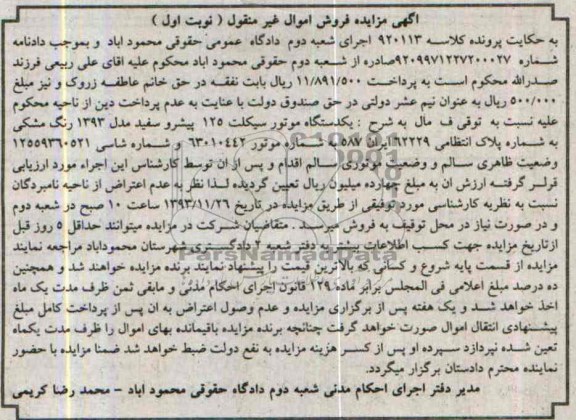 آگهی مزایده فروش اموال غیر منقول ( نوبت اول )
به حکایت پرونده کلاسه ۹۲۰۱۱۳ اجرای شعبه دوم دادگاه عمومی حقوقی محمود اباد و بموجب دادنامه
شماره ۹۲۰۹۹۷۱۲۲۷۲۰۰۰۲۷صادره از شعبه دوم حقوقی محمود اباد محکوم علیه اقای علی ربیعی فرزند
صدرالله محکوم است به پرداخت ۱۱/۸۹۱/۵۰۰ ریال بابت نفقه در حق خانم عاطفه زروک و نیز مبلغ
۵۰۰/۰۰۰ ریال به عنوان نیم عشر دولتی در حق صندوق دولت با عنایت به عدم پرداخت دین از ناحیه محکوم
علیه نسبت به توقی ف مال به شرح : یکدستگاه موتور سیکلت ۱۲۵ پیشرو سفید مدل ۱۳۹۳ رنگ مشکی
به شماره پلاک انتظامی ۶۲۲۲۹ ایران ۵۸۷ به شماره موتور ۶۳۰۱۰۴۴۲ و شماره شاسی ۱۲۵۵۹۳۶۰۵۲۱
وضعیت ظاهری سالم و وضعیت موتوری سالم اقدام و پس از ان توسط کارشناس این اجراء مورد ارزیابی
قرار گرفته ارزش ان به مبلغ چهارده میلیون ریال تعیین گردیده لذا نظر به عدم اعتراض از ناحیه نامبردگان
نسبت به نظریه کارشناسی مورد توقیفی از طریق مزایده در تاریخ ۱۳۹۳/۱۱/۲۶ ساعت ۱۰ صبح در شعبه دوم
و در صورت نیاز در محل توقیف به فروش میرسد . متقاضیان شرکت در مزایده میتوانند حداقل ۵ روز قبل
ازتاریخ مزایده جهت کسب اطلاعات بیشتر به دفتر شعبه ۲ دادگستری شهرستان محموداباد مراجعه نمایند
مزایده از قسمت پایه شروع و کسانی که بالاترین قیمت را پیشنهاد نمایند برنده مزایده خواهند شد و همچنین
ده درصد مبلغ اعلامی فی المجلس برابر ماده ۱۲۹ قانون اجرای احکام مدنی و مابقی ثمن ظرف مدت یک ماه
اخذ خواهد شد و یک هفته پس از برگزاری مزایده و عدم وصول اعتراض به ان پس از پرداخت کامل مبلغ
پیشنهادی انتقال اموال صورت خواهد گرفت چنانچه برنده مزایده باقیمانده بهای اموال را ظرف مدت یکماه
تعین شده نپردازد سپرده او پس از کسر هزینه مزایده به نفع دولت ضبط خواهد شد ضمنا مزایده با حضور
نماینده محترم دادستان برگزار میگردد.
مدیر دفتر اجرای احکام مدنی شعبه دوم دادگاه حقوقی محمود اباد - محمد رضا کریمی
ParsNamadData